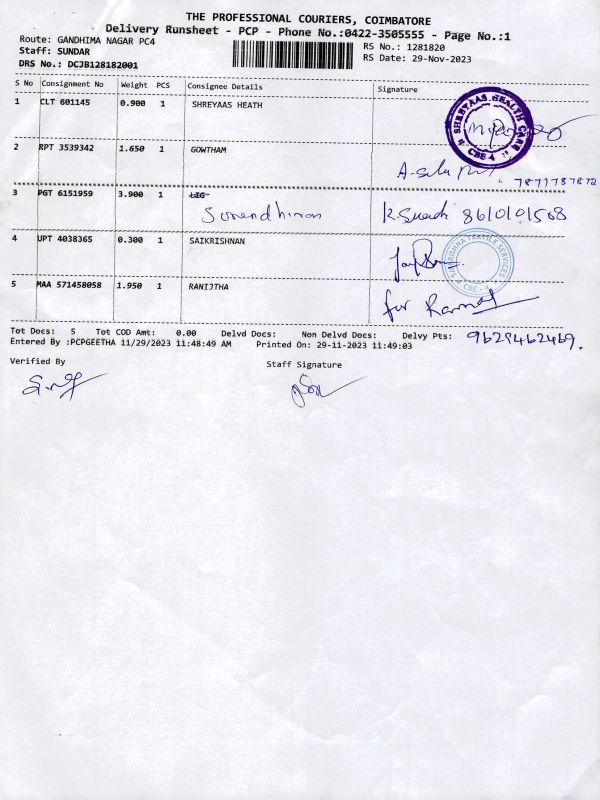 THE PROFESSIONAL COURIERS, COIMBATORE
Delivery Runsheet - PCP - Phone No.:0422-3505555 - Page No.:1
Route: GANDHIMA NAGAR PC4
RS No.: 1281820
Staff: SUNDAR
RS Date: 29-Nov-2023
DRS No.: DCJB128182001
S No Consignment No Weight PCS Consignee Details Signature
1 CLT 601145 0.900 1 SHREYAAS HEATH
SHREYAAS HEALTH CARE
CBE-4
2 RPT 3539342 1.650 1 GOWTHAM
7871787872
3 PGT 6151959 3.900 1 LIG
Surendhiran 8610101568
4 UPT 4038365 0.300 1 SAIKRISHNAN
SAIKRISHNA TEXTILE SERVICES
CBE-4
5 MAA 571458058 1.950 1 RANIJTHA
for
Tot Docs: 5 Tot COD Amt: 0.00 Delvd Docs: Non Delvd Docs: Delvy Pts: 9629462469.
Entered By :PCPGEETHA 11/29/2023 11:48:49 AM Printed On: 29-11-2023 11:49:03
Verified By Staff Signature